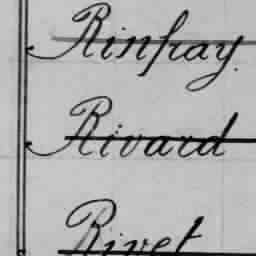 Rinfray.
Rivard
Rivet